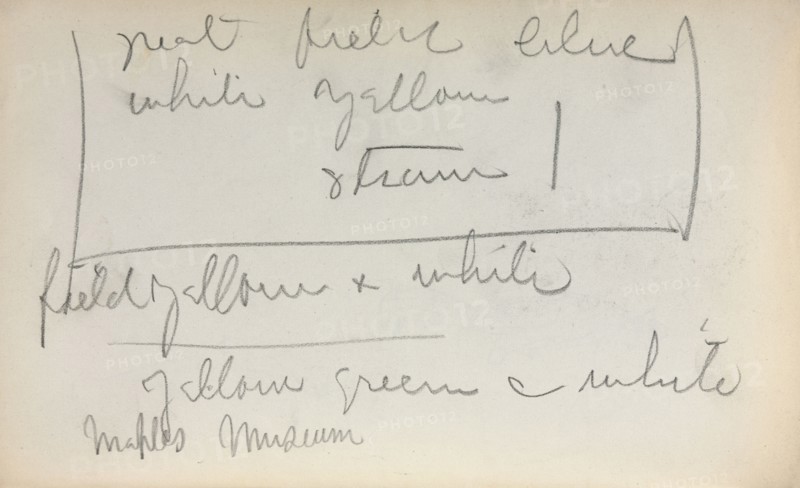 neat field blue
white yellow
straw
field yellow & white
yellow green & white
Naples Museum
PHOTO12